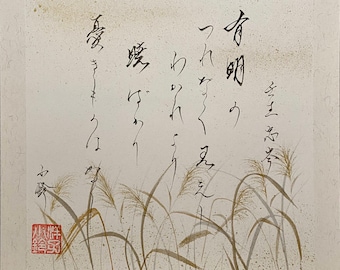 壬生忠岑
有明の
つれなく見えし
わかれより
暁ばかり
憂きものはなし